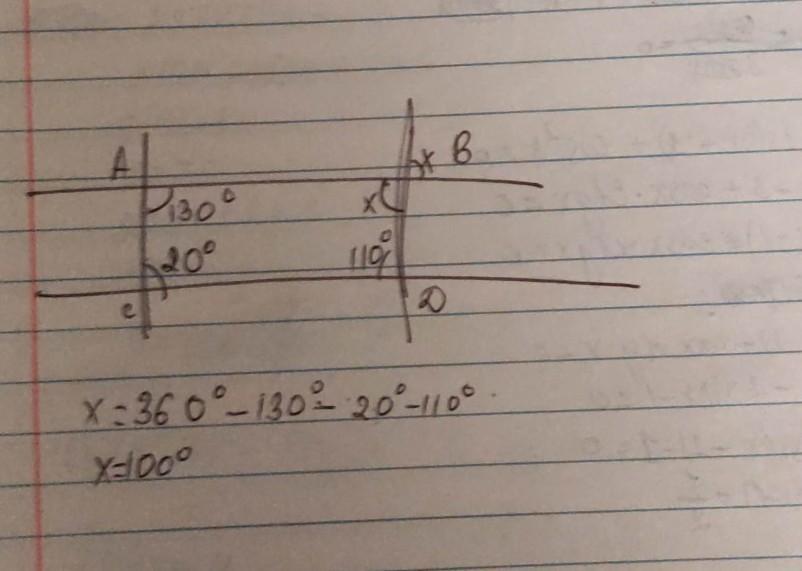 A
x B
130°
x
20°
110°
c
D
x=360°-130°-20°-110°
x=100°